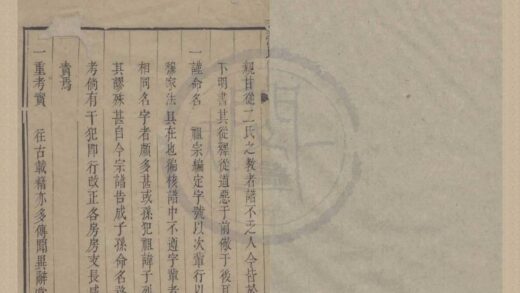 經甘從二氏之教者譜不乏人今皆於
下明書其從釋從道惡于前儆于後耳
一謹命名 祖宗編定字號以次輩行以
穆家法具在也徧核譜中不遵字輩者
相同名字者頗多甚或孫犯祖諱子列
其謬殊甚自今宗譜告成子孫命名務
考倘有干犯即行改正各房房支長咸
責焉
一重考實 往古載籍亦多傳聞異辭